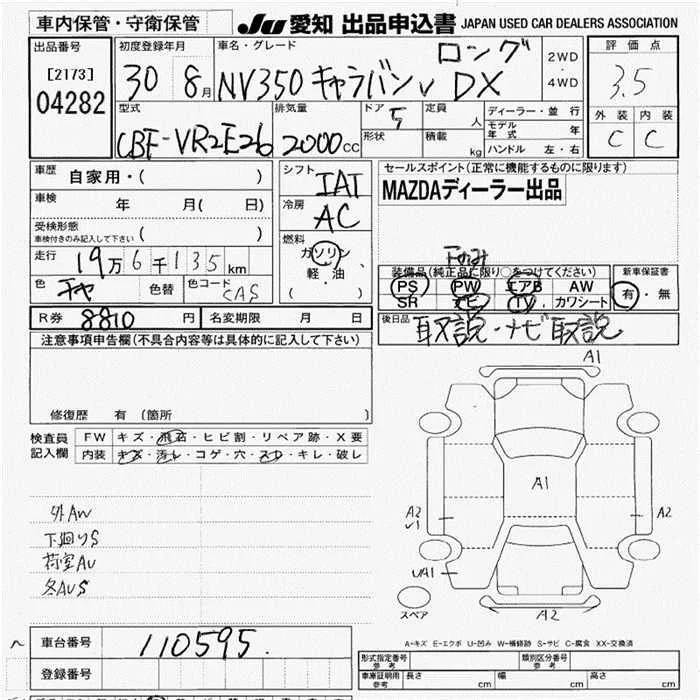 車内保管・守衛保管
JU 愛知 出品申込書 JAPAN USED CAR DEALERS ASSOCIATION
出品番号 [2173] 04282
初度登録年月 30 8月
車名・グレード NV350 キャラバンV ロング DX
2WD ・ 4WD
評価点 3.5
外装 C 内装 C
型式 CBF-VR2E26
排気量 2000cc
ドア 5
形状
定員 人
積載 kg
ディーラー・並行
モデル年式 年
ハンドル 左・右
車歴 自家用・( )
車検 年 月( 日)
受検形態 車検付きのみ記入して下さい ( )
走行 19万6千135km
色 チャ 色替 色コード CAS
シフト IAT
冷房 AC
燃料 ガソリン 軽・油 ( )
セールスポイント(正常に機能するものに限ります)
MAZDAディーラー出品
装備品(純正品に限り〇をつけてください)
PS PW エアB AW
SR ナビ TV カワシート
新車保証書 有・無
後日品 取説・ナビ取説
R券 8810 円 名変期限 月 日
注意事項申告欄(不具合内容等は具体的に記入して下さい)
修復歴 有 (箇所
検査員記入欄
FW キズ・飛石・ヒビ割・リペア跡・X要
内装 キズ・汚レ・コゲ・穴・スレ・キレ・破レ
外AW
下廻りS
荷室AU
冬AUS
A1
A1
A2
V1
A2
UA1
A2
スペア
A-キズ E-エクボ U-凹み W-補修跡 S-サビ C-腐食 XX-交換済
車台番号 110595
登録番号
形式指定番号 参考 類別区分番号 参考
車庫証明用 参考 長さ cm 幅 cm 高さ cm